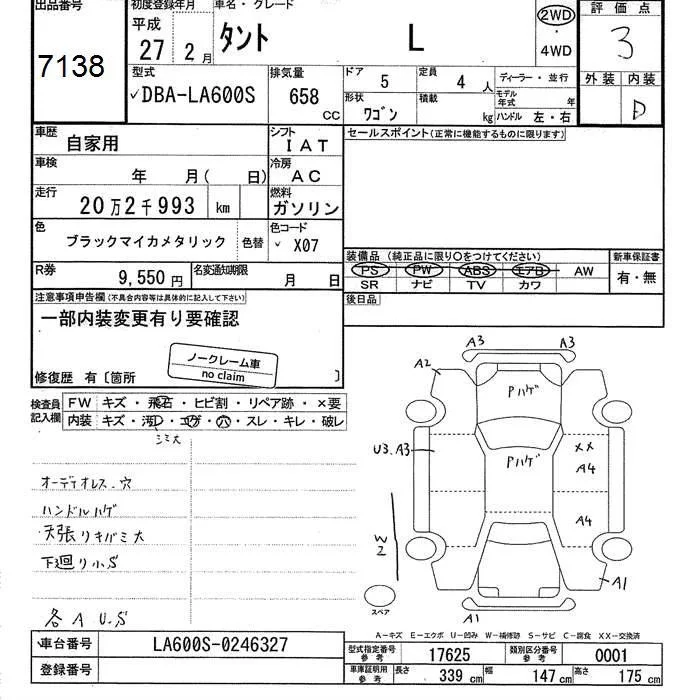 出品番号
7138
初度登録年月
平成
27年 2月
車名・グレード
タント L
2WD
・
4WD
評価点
3
外装 内装
D
型式
✓DBA-LA600S
排気量
658
CC
ドア 5
定員 4 人
ディーラー・並行
形状
ワゴン
積載
kg
モデル年式 年
ハンドル 左・右
車歴 自家用
シフト IAT
車検 年 月( 日)
冷房 AC
走行 20万2千993 km
燃料 ガソリン
色 ブラックマイカメタリック
色替
色コード
✓ X07
R券 9,550円
名変通知期限
月 日
セールスポイント(正常に機能するものに限ります)
装備品(純正品に限り○をつけてください)
PS PW ABS エアB AW
SR ナビ TV カワ
新車保証書
有・無
後日品
注意事項申告欄(不具合内容等は具体的に記入して下さい)
一部内装変更有り要確認
ノークレーム車
no claim
修復歴 有〔箇所 〕
検査員記入欄
FW キズ・飛石・ヒビ割・リペア跡・×要
内装 キズ・汚レ・コゲ・穴・スレ・キレ・破レ
シミ大
オーディオレス・穴
ハンドルハゲ
天張りキバミ大
下廻り小S
各A U.S
A3 A3
A2
Pハゲ
U3.A3
Pハゲ
XX
A4
A4
W2
A1
A1
スペア
A-キズ E-エクボ U-凹み W-補修跡 S-サビ C-腐食 XX-交換済
車台番号 LA600S-0246327
登録番号
型式指定番号 参考 17625
類別区分番号 参考 0001
車庫証明用 参考 長さ 339 cm 幅 147 cm 高さ 175 cm